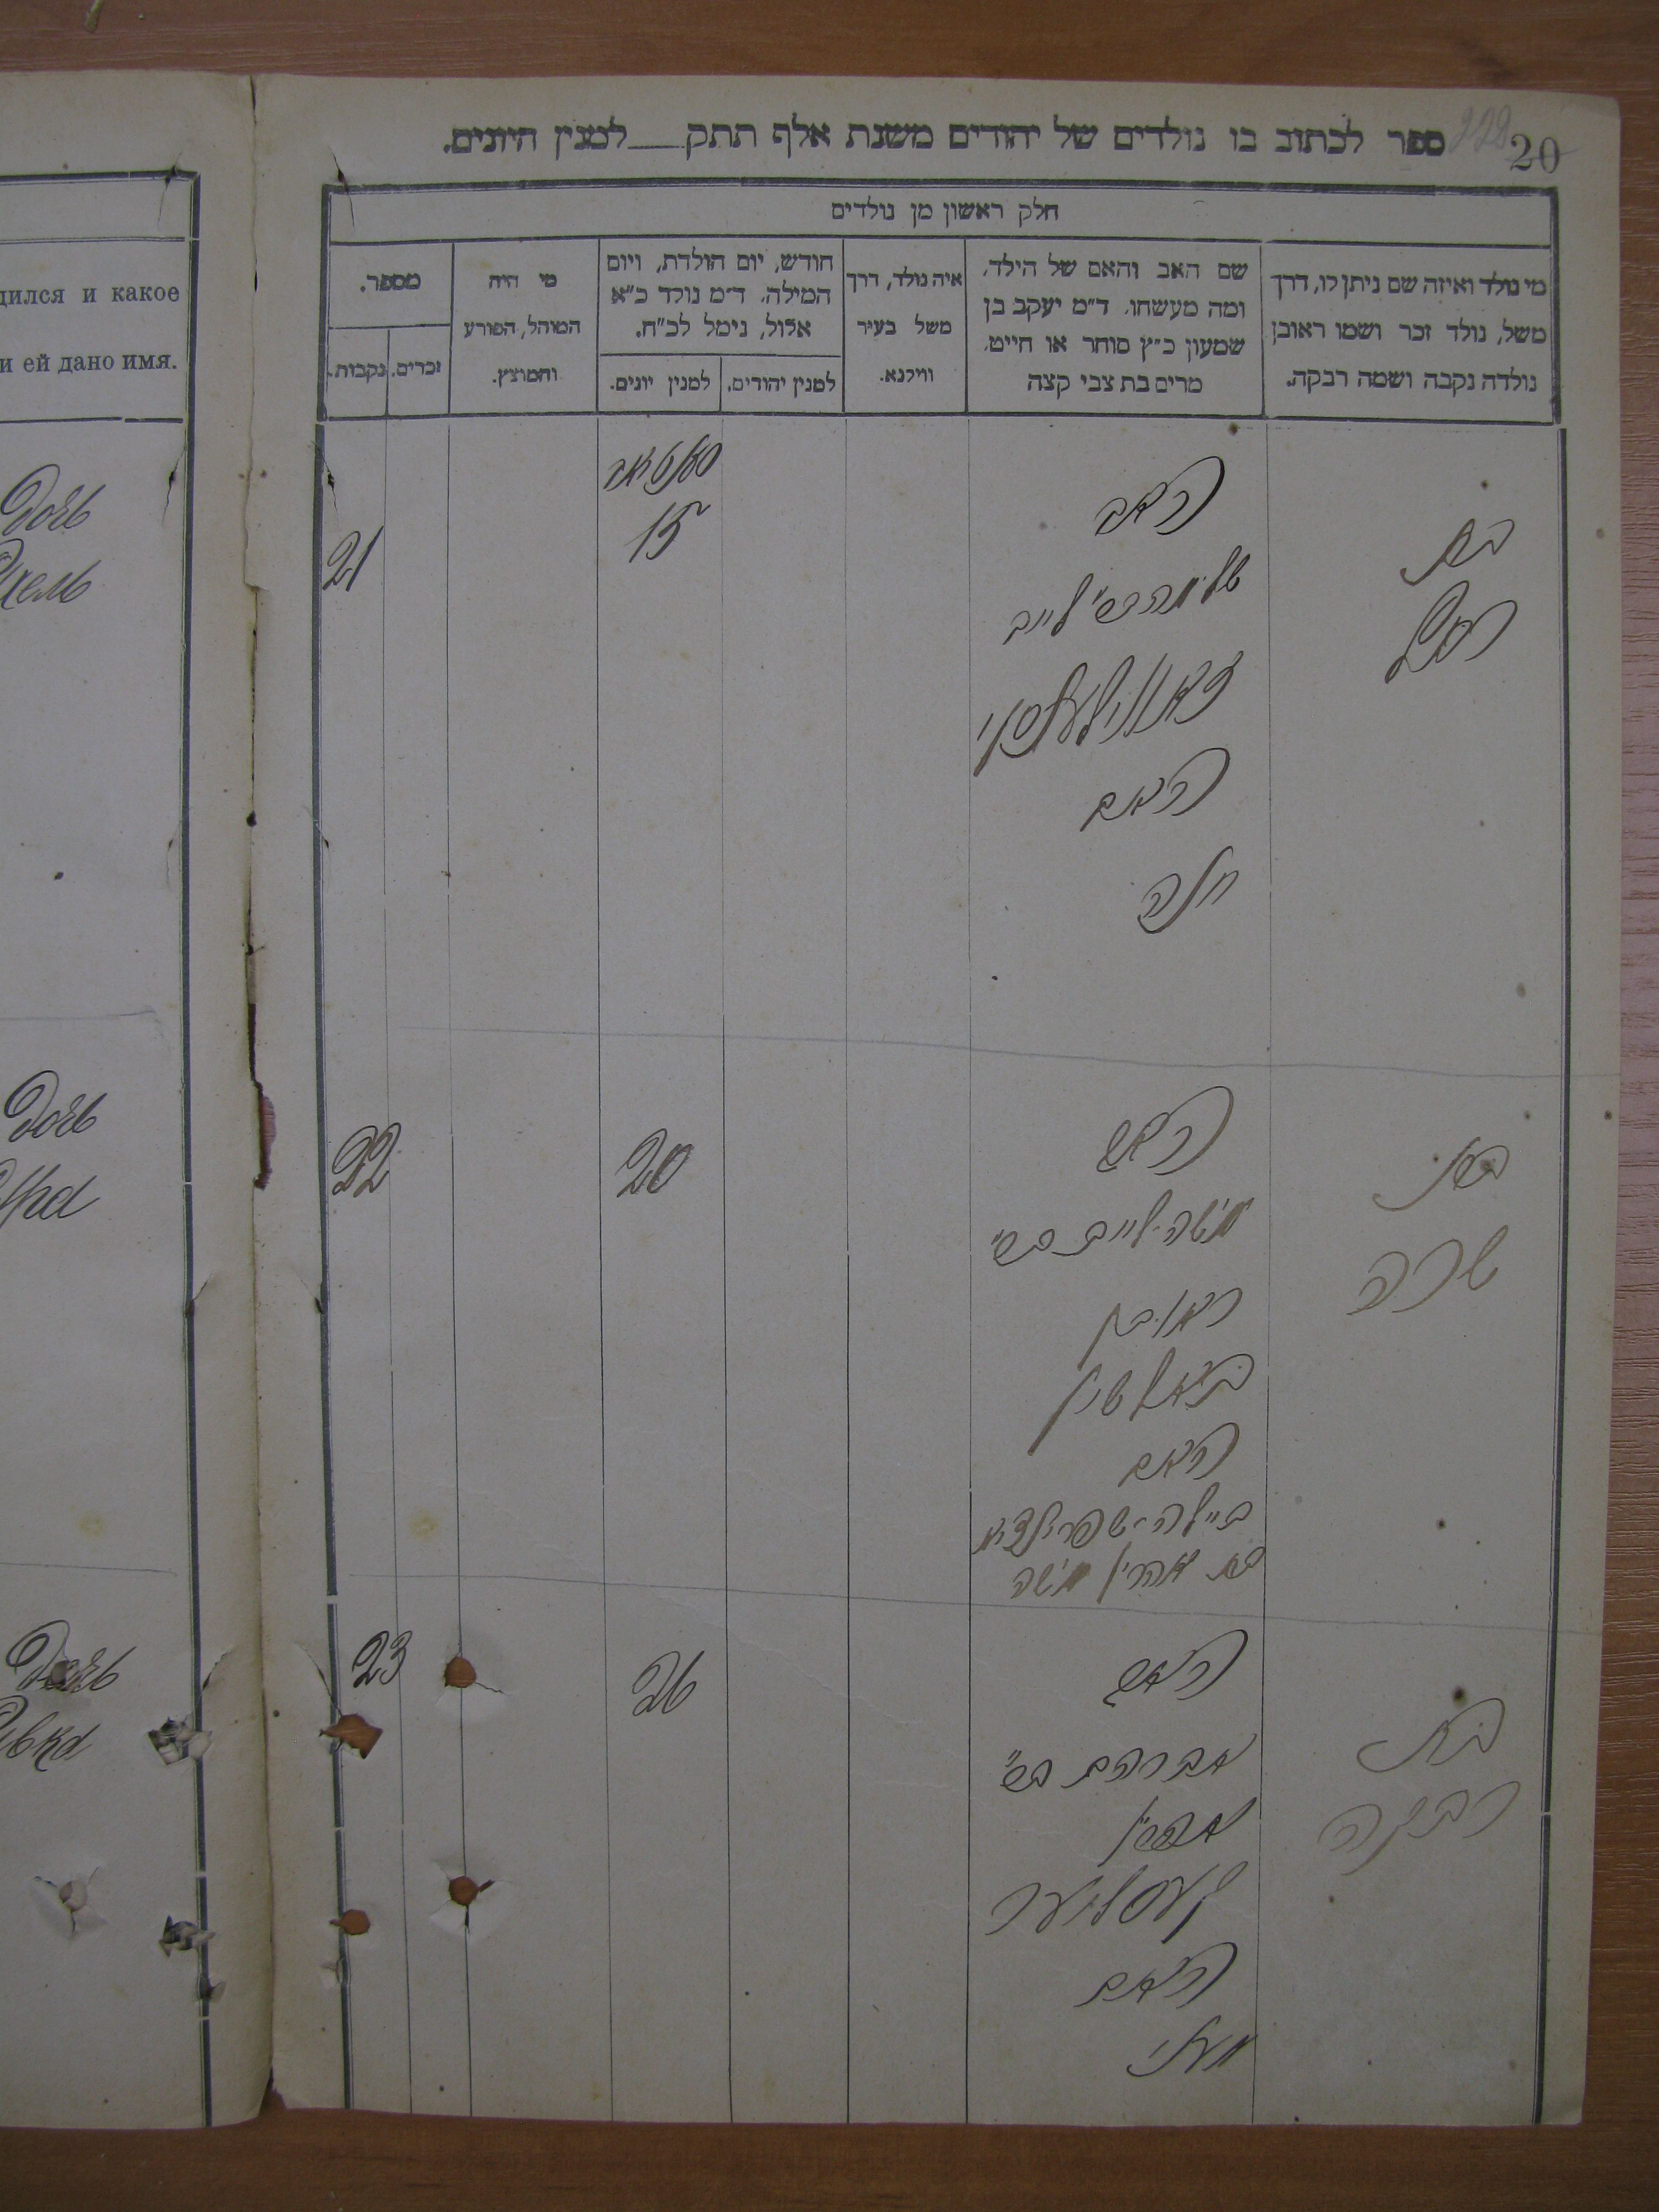 20
ספר לכתוב בו נולדים של יהודים משנת אלף תתק__ למנין היונים.
חלק ראשון מן נולדים
מי נולד ואיזה שם ניתן לו, דרך
משל, נולד זכר ושמו ראובן
נולדה נקבה ושמה רבקה.
שם האב והאם של הילד,
ומה מעשהו. ד״מ יעקב בן
שמעון כ״ץ סוחר או חייט.
מרים בת צבי קצה
איה נולד, דרך
משל בעיר
ווילנא.
חודש, יום הולדת, ויום
המילה. ד״מ נולד כ״א
אלול, נימל לכ״ח.
למנין יהודים.
למנין יונים.
מי היה
המוהל, הפורע
והמוצץ.
מספר.
זכרים.
נקבות.
дился и какое
и ей дано имя.
בת
רחל
האב
שלמה בש״ לייב
האם
15
21
дочь
בת
שרה
האב
משה־לייב בש״
ראובן
האם
ביילה־שפרינציא
בת אהרין משה
20
22
дочь
בת
רבקה
האב
אברהם בש״
האם
26
23
дочь